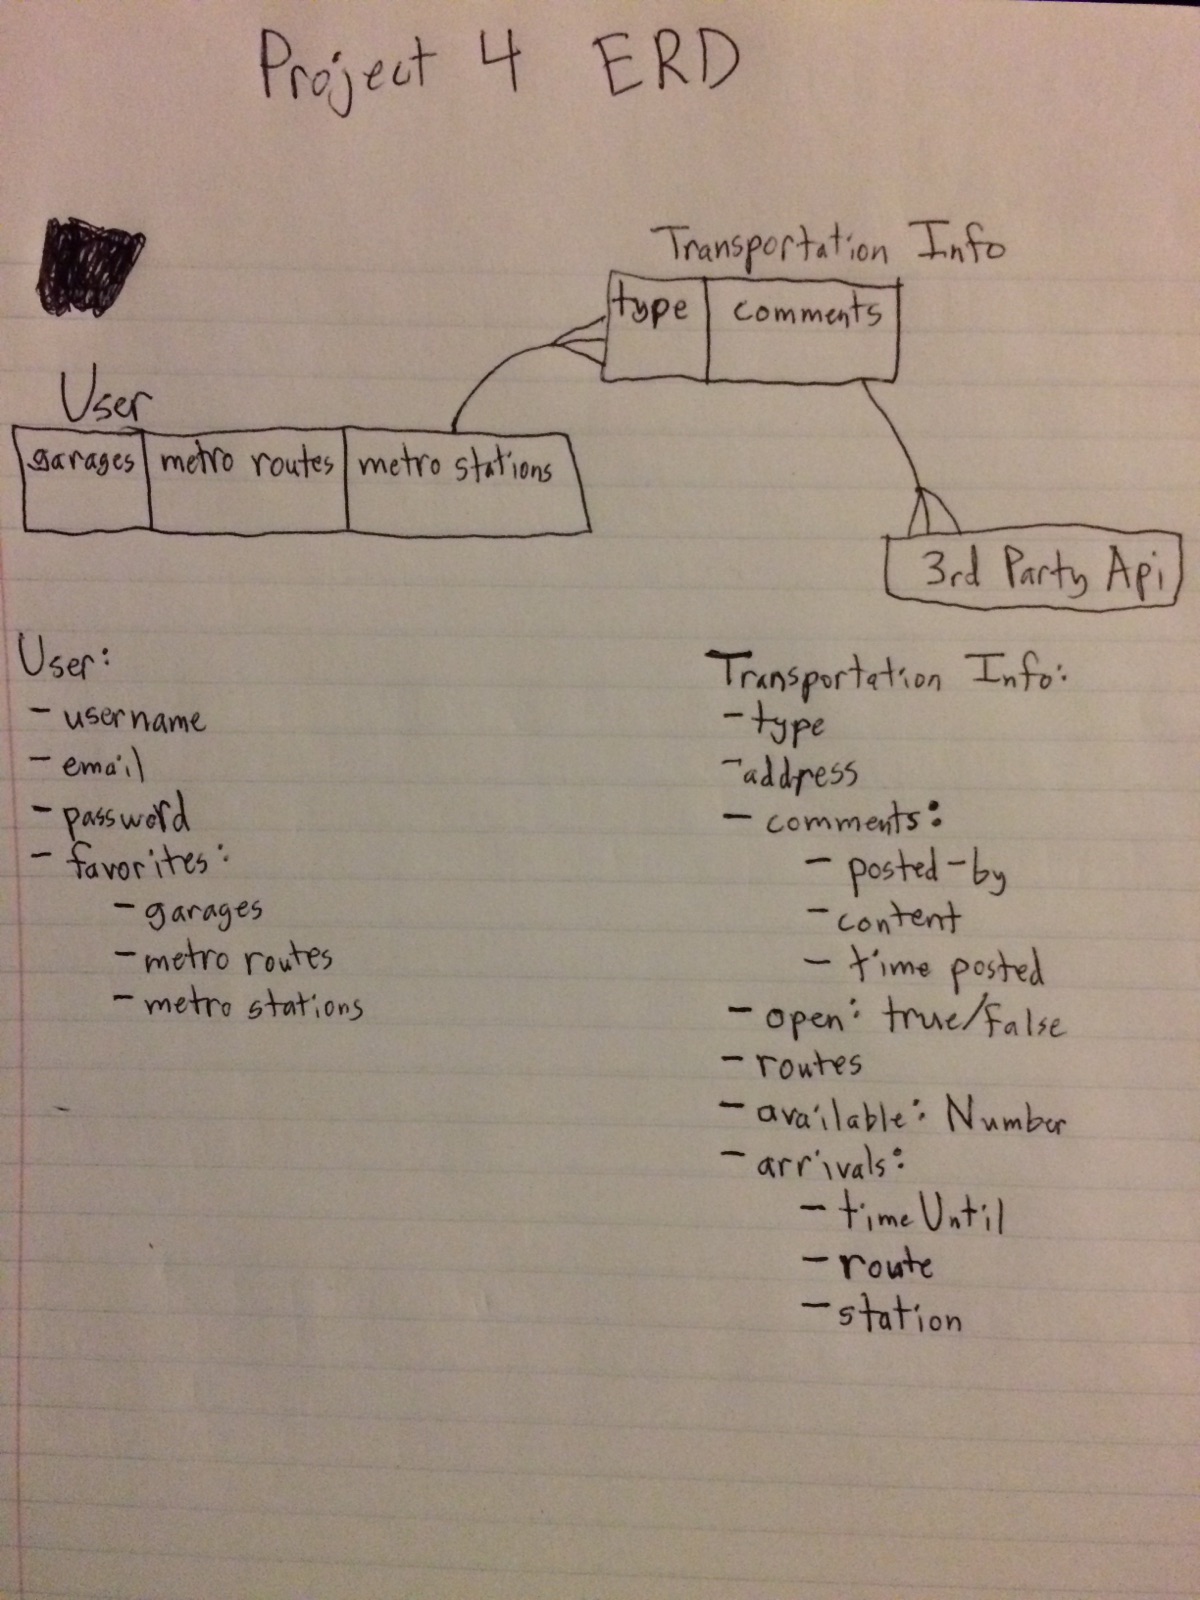 Project 4 ERD
Transportation Info
type comments
User
garages metro routes metro stations
3rd Party Api
User:
- username
- email
- password
- favorites:
- garages
- metro routes
- metro stations
Transportation Info:
- type
- address
- comments:
- posted-by
- content
- time posted
- open: true/false
- routes
- available: Number
- arrivals:
- timeUntil
- route
- station